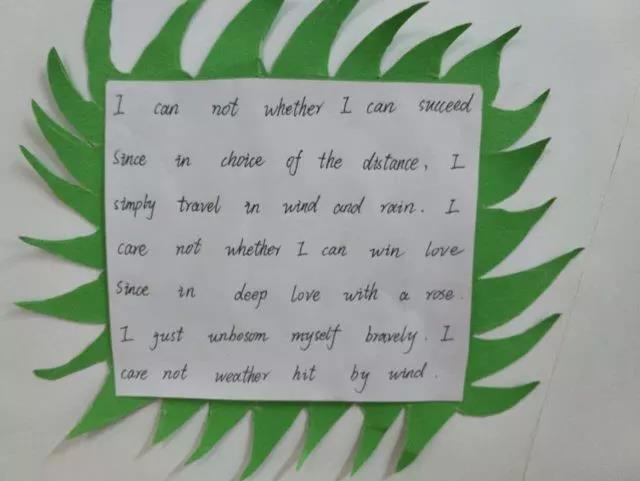 I can not whether I can succeed
Since in choice of the distance, I
simply travel in wind and rain. I
care not whether I can win love
Since in deep love with a rose.
I just unbosom myself bravely. I
care not weather hit by wind.